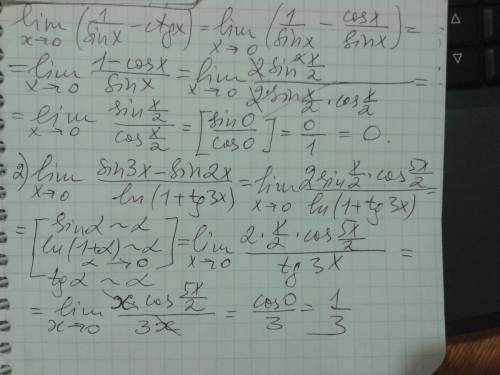 lim x→0 (1/sinx − ctgx) = lim x→0 (1/sinx − cosx/sinx) =
= lim x→0 (1−cosx)/sinx = lim x→0 (2sin²x/2)/(2sin x/2 · cos x/2) =
= lim x→0 (sin x/2)/(cos x/2) = [sin0/cos0] = 0/1 = 0.
2) lim x→0 (sin3x−sin2x)/ln(1+tg3x) = lim x→0 (2sin x/2 · cos 5x/2)/ln(1+tg3x) =
= [sinα~α
ln(1+α)~α
α→0
tgα~α] = lim x→0 (2·x/2·cos 5x/2)/tg3x =
= lim x→0 (x·cos 5x/2)/3x = cos0/3 = 1/3